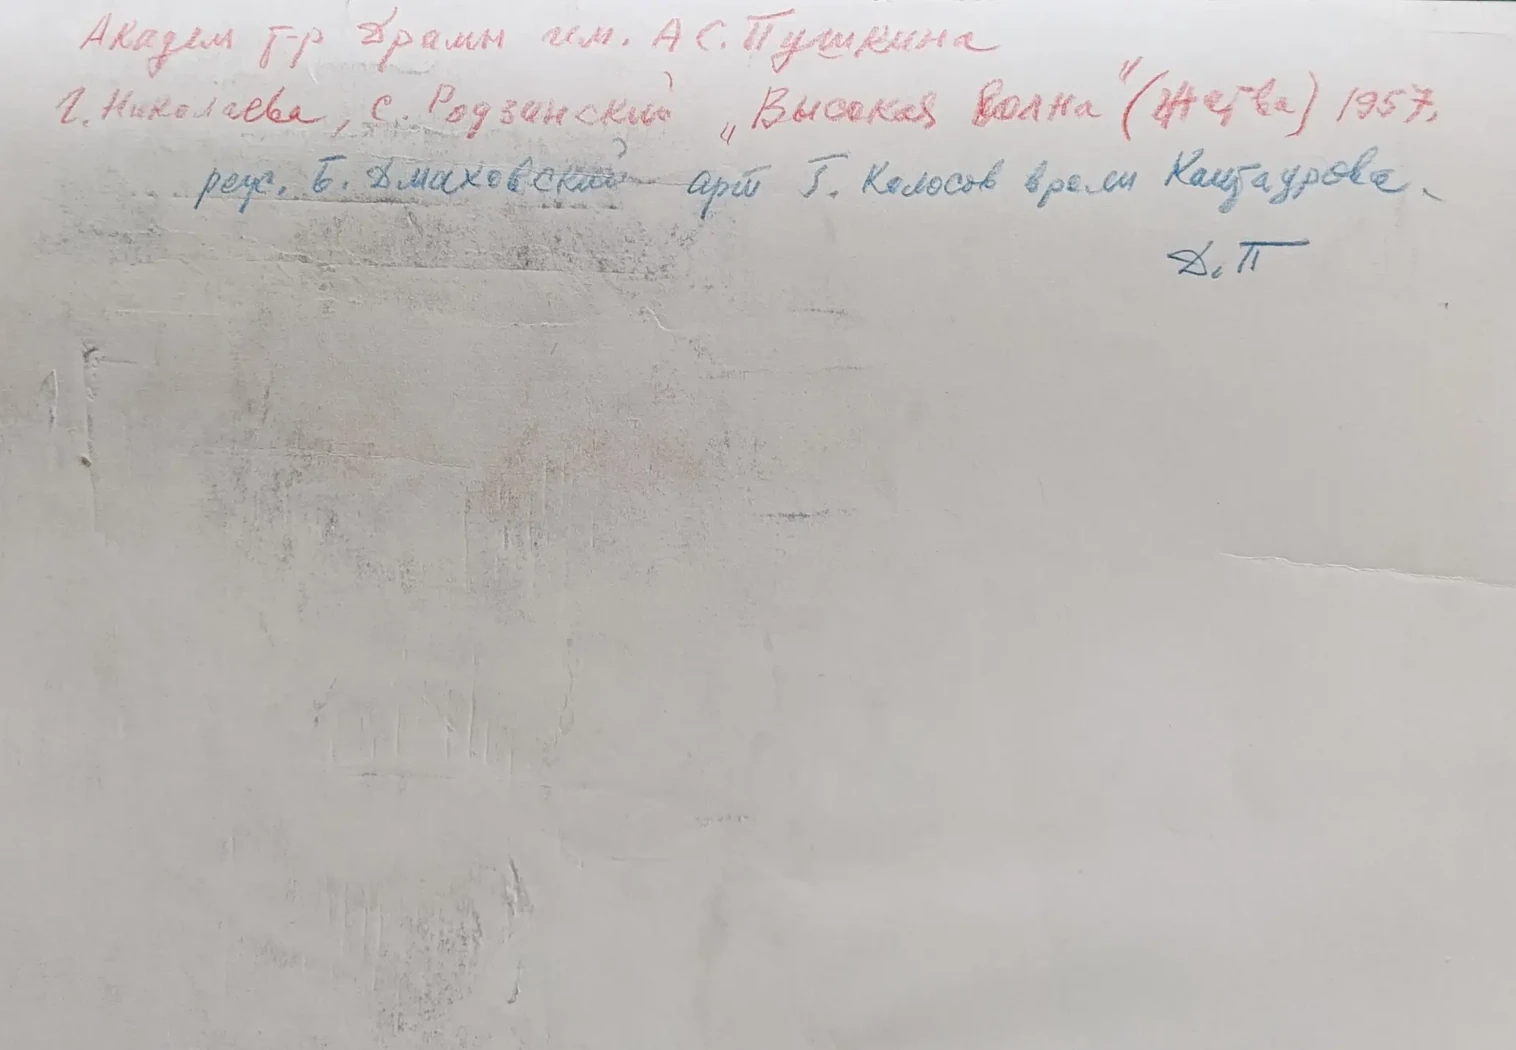 Академ т-р Драмы им. А С. Пушкина
Г. Николаева, С. Родзинский „Высокая волна" (Жатва) 1957.
реж. Б. Дмаховский арт Г. Колосов в роли Кантаурова.
Д. П